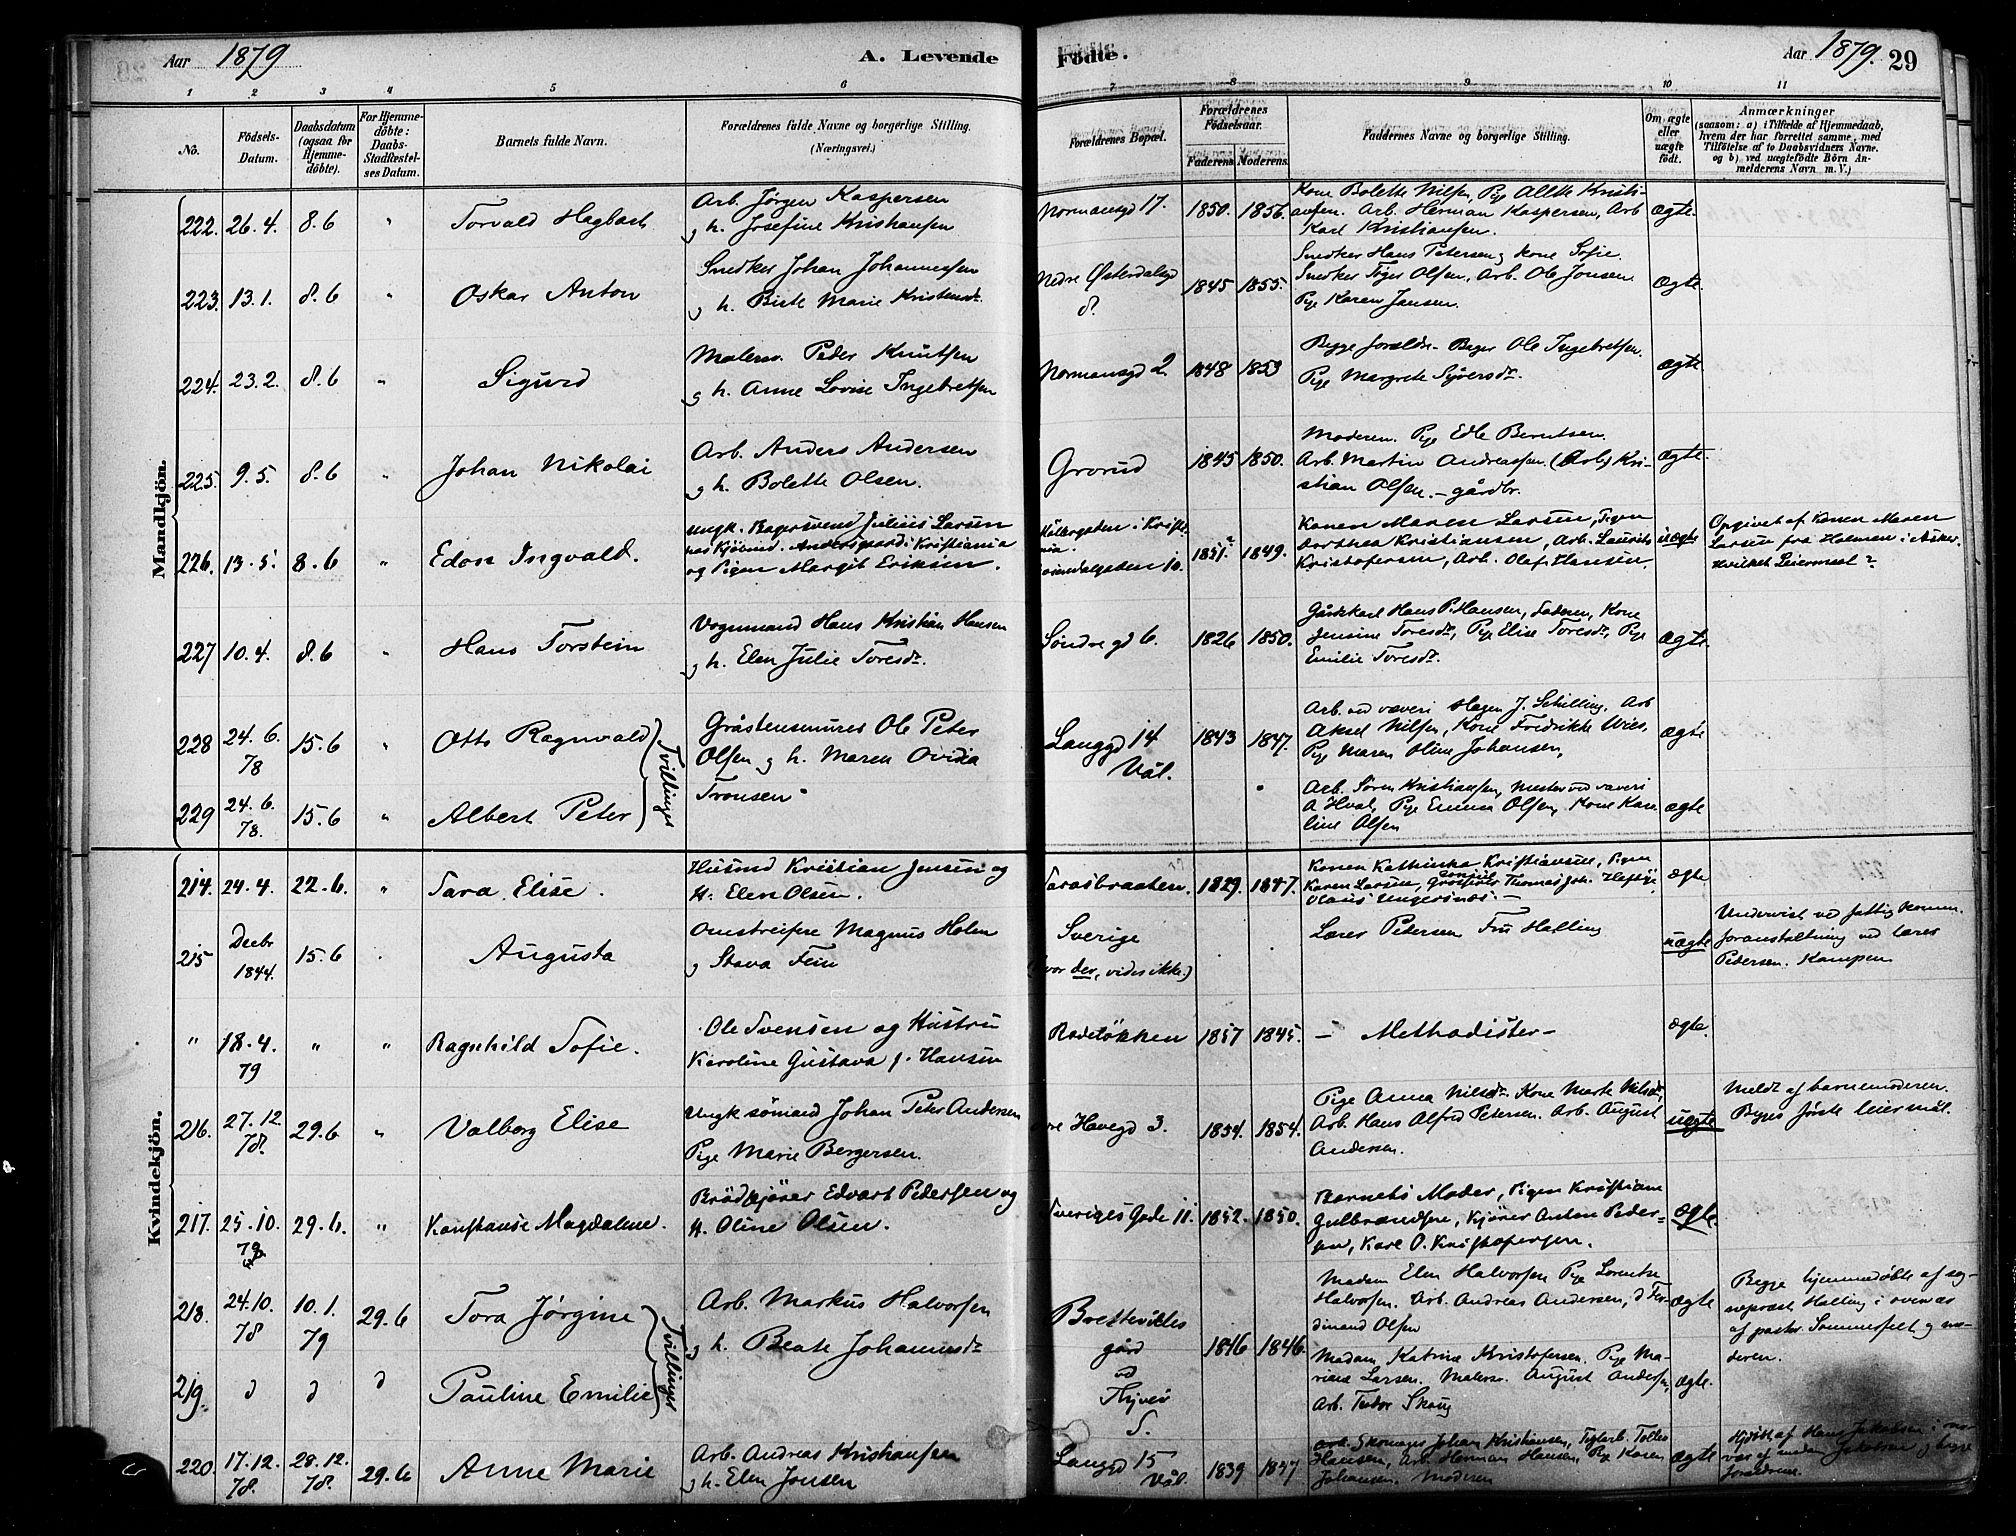 Aar 1879 A. Levende Födte. Aar 1879. 29
1 2 3 4 5 6 7 8 9 10 11
No.
Födsels-
Datum.
Daabsdatum
(ogsaa for
Hjemme-
döbte).
For Hjemme-
döbte:
Daabs-
Stadfæstel-
ses Datum.
Barnets fulde Navn.
Forældrenes fulde Navne og borgerlige Stilling.
(Næringsvei.)
Forældrenes Bopæl.
Forældrenes
Födselsaar.
Faderens. Moderens.
Faddernes Navne og borgerlige Stilling.
Om ægte
eller
uægte
födt.
Anmærkninger
(saasom: a) i Tilfælde af Hjemmedaab,
hvem der har forrettet samme, med
Tilföielse af to Daabsvidners Navne.
og b) ved uægtefödte Börn An-
melderens Navn m. V.)
Mandkjön.
222. 26.4. 8.6 " Torvald Hagbart
Arb. Jørgen Kaspersen
og h. Josefine Kristiansen
Normansgd 17. 1850. 1856.
Kone Bolette Nilsen, Pige Alette Kristi-
ansen. Arb. Herman Kaspersen, Arb
Karl Kristiansen.
ægte.
223. 13.1. 8.6 " Oskar Anton
Snedker Johan Johannessen
og h. Birte Marie Kristensdr.
Nedre Østerdalsgd
8. 1845 1855.
Snedker Hans Petersen og kone Sofie.
Snedker Olsen, Arb. Ole Jonsen
Pige Karen Jansen.
ægte.
224. 23.2. 8.6 " Sigurd
Malersv. Peder Knutsen
og h. Anne Lovise Ingebretsen
Normansgd 2. 1848 1853
Begge foreldr. Ole Ingebretsen.
Pige Margrete Syversdr.
ægte
225. 9.5. 8.6 " Johan Nikolai
Arb. Anders Andersen
og h. Bolette Olsen.
Grorud 1845 1850.
Moderen. Pige Edle Berntsen.
Arb. Martin Andreassen (Arb) Kri-
stian Olsen. – gårdbr.
ægte.
226. 13.5. 8.6 " Edon Ingvald.
Ungk. Bagersvend Julius Larsen
Kristiania
og Pigen Margit Eriksen.
Møllergaden i Kristia-
nia.
10. 1851. 1849.
Konen Maren Larsen, Pigen
Dorthea Kristiansen, Arb. Laurits
Kristofersen, Arb. Olaf Hansen.
uægte
Opgivet af Konen Maren
Larsen fra Holmen i Asker.
Hvilket Leiermaal?
227 10.4. 8.6 " Hans Torstein
Vognmand Hans Kristian Hansen
og h. Elen Julie Toresdr.
Søndre gd 6. 1826 1850.
Gårdskarl Hans P. Hansen, Faderen, Kone
Jensine Toresdr, Pige Elise Toresdr, Pige
Emilie Toresdr.
ægte.
228 24.6.
78 15.6 " Otto Ragnvald
Gråstensmurer Ole Peter
Olsen og h. Maren Ovidia
Tronsen
Tvillinger
Langgd 14
Vål. 1843 1847.
Arb. ved væveri Hagen J. Schilling. Arb
Aksel Nilsen, Kone Fredrikke Wiel,
Pige Maren Oline Johansen,
ægte
229 24.6.
78. 15.6 " Albert Peter
Arb. Søren Kristiansen, mester ved væveri
A Hval, Pige Emma Olsen, Kone Karo-
line Olsen
ægte
Kvindekjön.
214. 24.4. 22.6. " Tara Elise.
Husmd Kristian Jensen og
H. Elen Olsen.
Taraldbraaten. 1829. 1847.
Konen Kathinka Kristiansen, Pigen
Karen Larsen, Grosserer Consul Thomas Joh. Heftye,
Olaus Ungersnæs. –
ægte
215 Decbr
1844. 15.6 . Augusta
Omstreifere Magnus Holm
og Stava Fein
Sverige
(hvor der, vides ikke.)
Lærer Petersen Fru Halling
uægte
Undervist ved fattigkomm.
foranstaltning ved lærer
Pedersen. Kampen
" 18.4.
79 " " Ragnhild Sofie.
Ole Svensen og Hustru
Karoline Gustava f. Hansen
Rodeløkken 1857 1845. – Methodister – ægte.
216. 27.12.
78. 29.6 " Valborg Elise
Ungk sømand Johan Peter Andersen
Pige Marie Bergersen.
Havegd 3. 1854. 1854.
Pige Anna Nilsdr. Kone Marte Nilsdr,
Arb. Hans Alfred Petersen. Arb. August
Andersen.
uægte
Meldt af barnemoderen.
Begges første leiermål.
217. 25.10.
78 29.6. " Konstanse Magdalene.
Brødkjører Edvart Pedersen og
H. Oline Olsen.
Sveriges Gade 11. 1852. 1850.
Barnets Moder, Pigen Kristiane
Gulbrandsen, Kjører Anton Peder-
sen, Karl O. Kristofersen.
ægte.
218. 24.10.
78 10.1.
79 29.6 Tora Jørgine
Arb. Markus Halvorsen
og h. Beate Johannesdr
Tvillinger
Brettevilles
gård
ved
Thyvei
S. 1846 1846.
Madam Elen Halvorsen Pige Lorentze
Halvorsen. Arb. Andreas Andersen, d Fer-
dinand Olsen
ægte
Begge hjemmedøbte af sog-
neprest Halling i overvær
af pastor Sommerfelt og mo-
deren.
219. d d d Pauline Emilie
Madam Katrine Kristofersen. Pige Ma-
Larsen. Malersv. August Andersen,
Arb. Teodor Skoug
ægte.
220. 17.12.
78. 28.12.
78. 29.6 Anne Marie
Arb. Andreas Kristiansen
og h. Elen Jonsen
Langgd 15
Vål. 1839 1847
Skomager Johan Kristiansen, Teglarb. Tolles
Hansen, Arb. Herman Hansen, Pige Karen
Johansen. Moderen
ægte
Hjdøbt af Hans Jakobsen i over-
vær af madam Jakobsen og begge
forældrene.